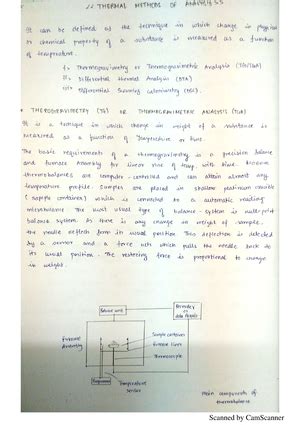 // THERMAL METHODS OF ANALYSIS
It can be defined as the technique in which change in physical
or chemical property of a substance is measured as a function
of temperature.
i. Thermogravimetry or Thermogravimetric Analysis (TG/TGA)
ii. Differential Thermal Analysis (DTA)
iii. Differential Scanning Calorimetry (DSC).
* THERMOGRAVIMETRY (TG) OR THERMOGRAVIMETRIC ANALYSIS (TGA)
It is a technique in which change in weight of a substance is
measured as a function of temperature or time.
The basic requirements of a thermogravimetry is a precision balance
and furnace assembly for linear rise of temp. with time.
thermobalances are computer-controlled and can attain almost any
temperature profile. Samples are placed in shallow platinum crucible
(sample container) which is connected to a automatic reading
microbalance. The most usual type of balance system is null-point
balance system. As there is any change in weight of sample,
the needle deflects from its usual position. This deflection is detected
by a sensor and a force acts which pulls the needle back to
its usual position. The restoring force is proportional to change
in weight.
Balance unit
Recorder or data display
Furnace Assembly
Sample container
Furnace lines
Thermocouple
Programmer
Temperature Sensor
Main components of
thermobalance
Scanned by CamScanner